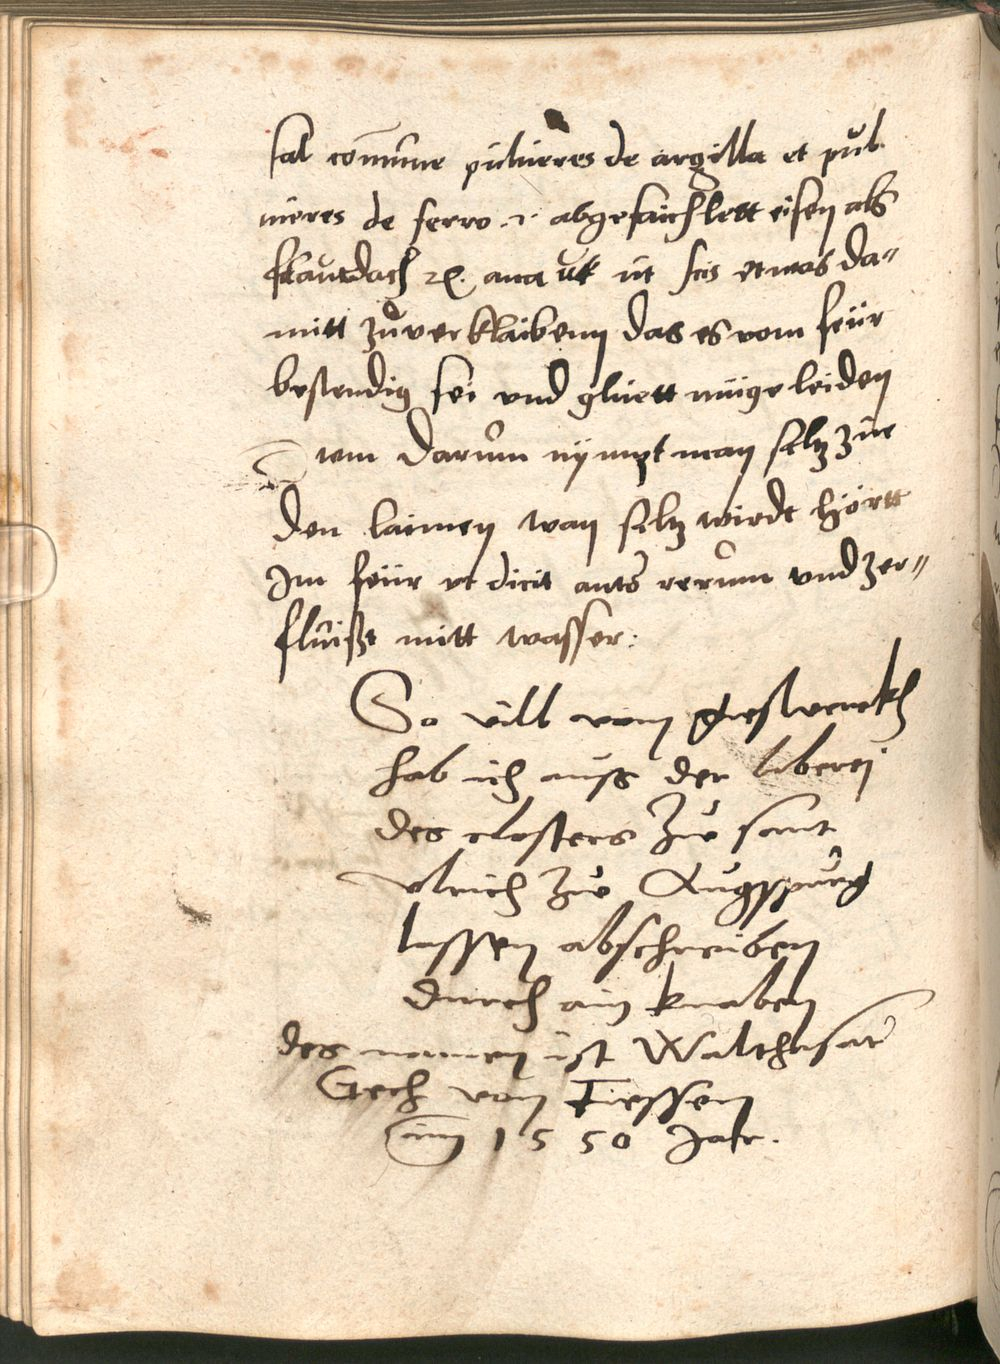 sal com̄une pulueres de argilla et pul
ueres de ferro .i. abgefaichlett eisen als
staub doch ꝛc. ana
mitt zů verklaibenn das es vom feür
bestendig sei vnd gluett müge leiden
wm darum nÿmpt man saltz zue
den laimen wan saltz wirdt hört
Im feür vt dicit rerum vnd zer„
fluißt mitt wasser:
So vill vom gieswerckh
hab ich auss der liberei
des closters zue sant
vlrich zue Augspurg
lassen abschreiben
durch ain knaben
des namen ist Walthasar
Gech von Fiessen
im 1550 Jahr.